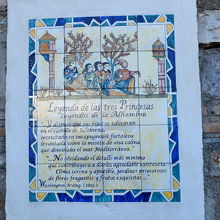 Leyenda de las tres Princesas
Leyendas de la Alhambra
"Y dispuso que sus hijas se educaran
en el castillo de Salobreña,
incrustado en inexpugnable fortaleza
levantada sobre la meseta de una colina
que domina el mar Mediterráneo.
"No olvidando el detalle más mínimo
que contribuyera a darles agradable existencia
Clima sereno y apacible, jardines primorosos
de flores fragantes y frutos exquisitos..."
Washington Irving (1829)